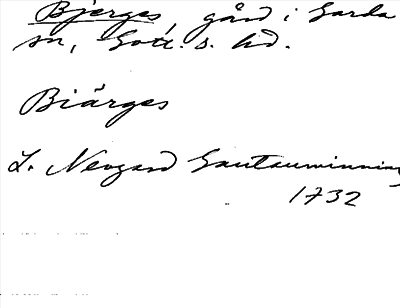 Bjerges, gård i Garda
sn, Gotl. s. hd.
Biärges
L. Neogard Gautauminning
1732